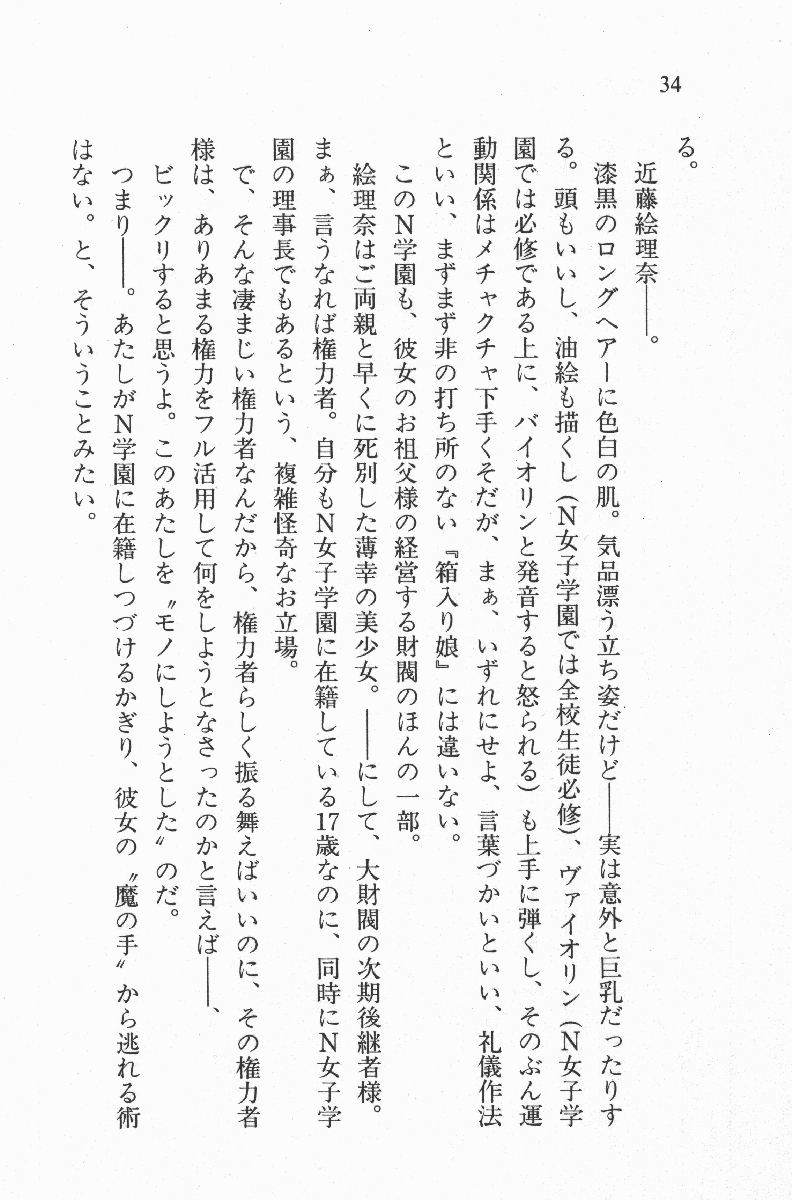 34
る。
　近藤絵理奈――。
　漆黒のロングヘアーに色白の肌。気品漂う立ち姿だけど――実は意外と巨乳だったりす
る。頭もいいし、油絵も描くし（Ｎ女子学園では全校生徒必修）、ヴァイオリン（Ｎ女子学
園では必修である上に、バイオリンと発音すると怒られる）も上手に弾くし、そのぶん運
動関係はメチャクチャ下手くそだが、まぁ、いずれにせよ、言葉づかいといい、礼儀作法
といい、まずまず非の打ち所のない『箱入り娘』には違いない。
　このＮ学園も、彼女のお祖父様の経営する財閥のほんの一部。
　絵理奈はご両親と早くに死別した薄幸の美少女。――にして、大財閥の次期後継者様。
まぁ、言うなれば権力者。自分もＮ女子学園に在籍している17歳なのに、同時にＮ女子学
園の理事長でもあるという、複雑怪奇なお立場。
　で、そんな凄まじい権力者なんだから、権力者らしく振る舞えばいいのに、その権力者
様は、ありあまる権力をフル活用して何をしようとなさったのかと言えば――、
　ビックリすると思うよ。このあたしを〝モノにしようとした〟のだ。
　つまり――。あたしがＮ学園に在籍しつづけるかぎり、彼女の〝魔の手〟から逃れる術
はない。と、そういうことみたい。